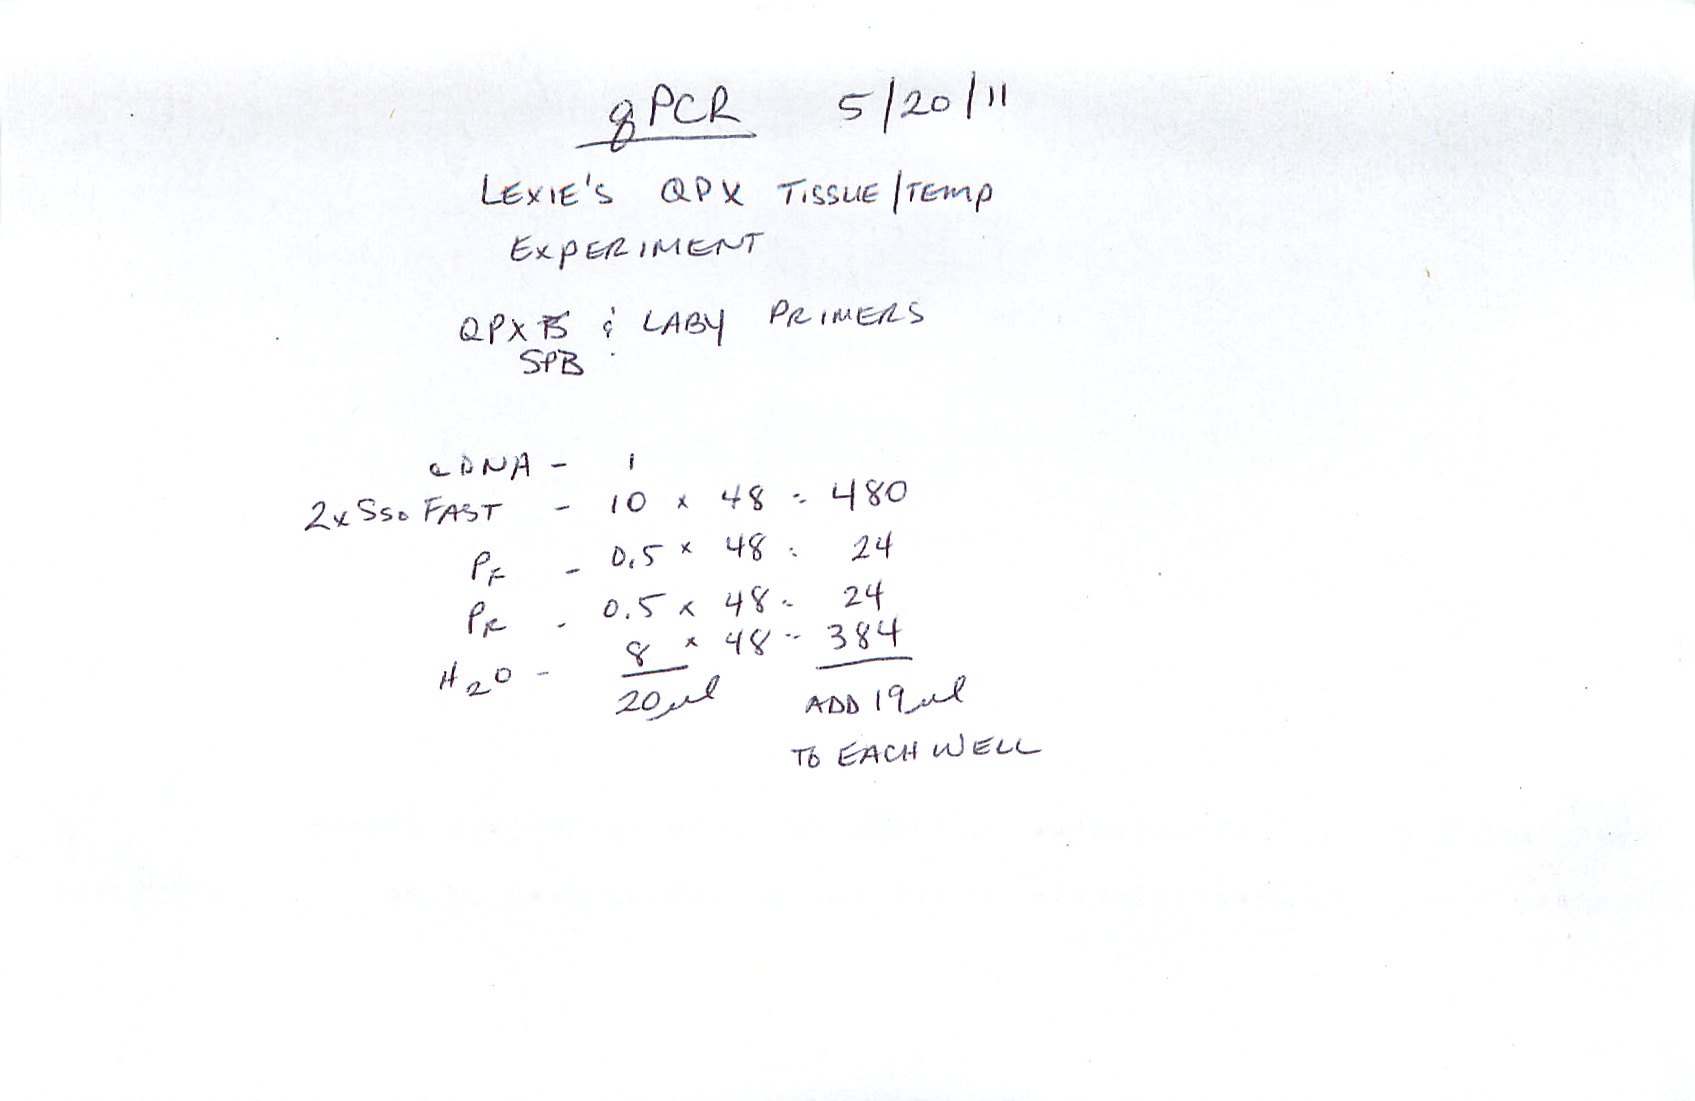 qPCR 5/20/11
LEXIE'S QPX TISSUE/TEMP
EXPERIMENT
QPX & LABY PRIMERS
SPB
cDNA - 1
2x Sso FAST - 10 x 48 = 480
PF - 0.5 x 48 = 24
PR - 0.5 x 48 = 24
H2O - 8 x 48 = 384
20µl ADD 19µl
TO EACH WELL